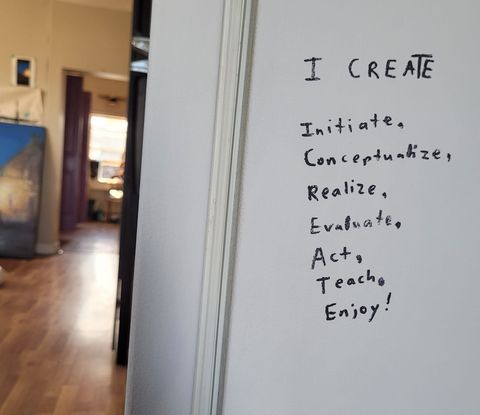 I CREATE
Initiate,
Conceptualize,
Realize,
Evaluate,
Act,
Teach,
Enjoy!